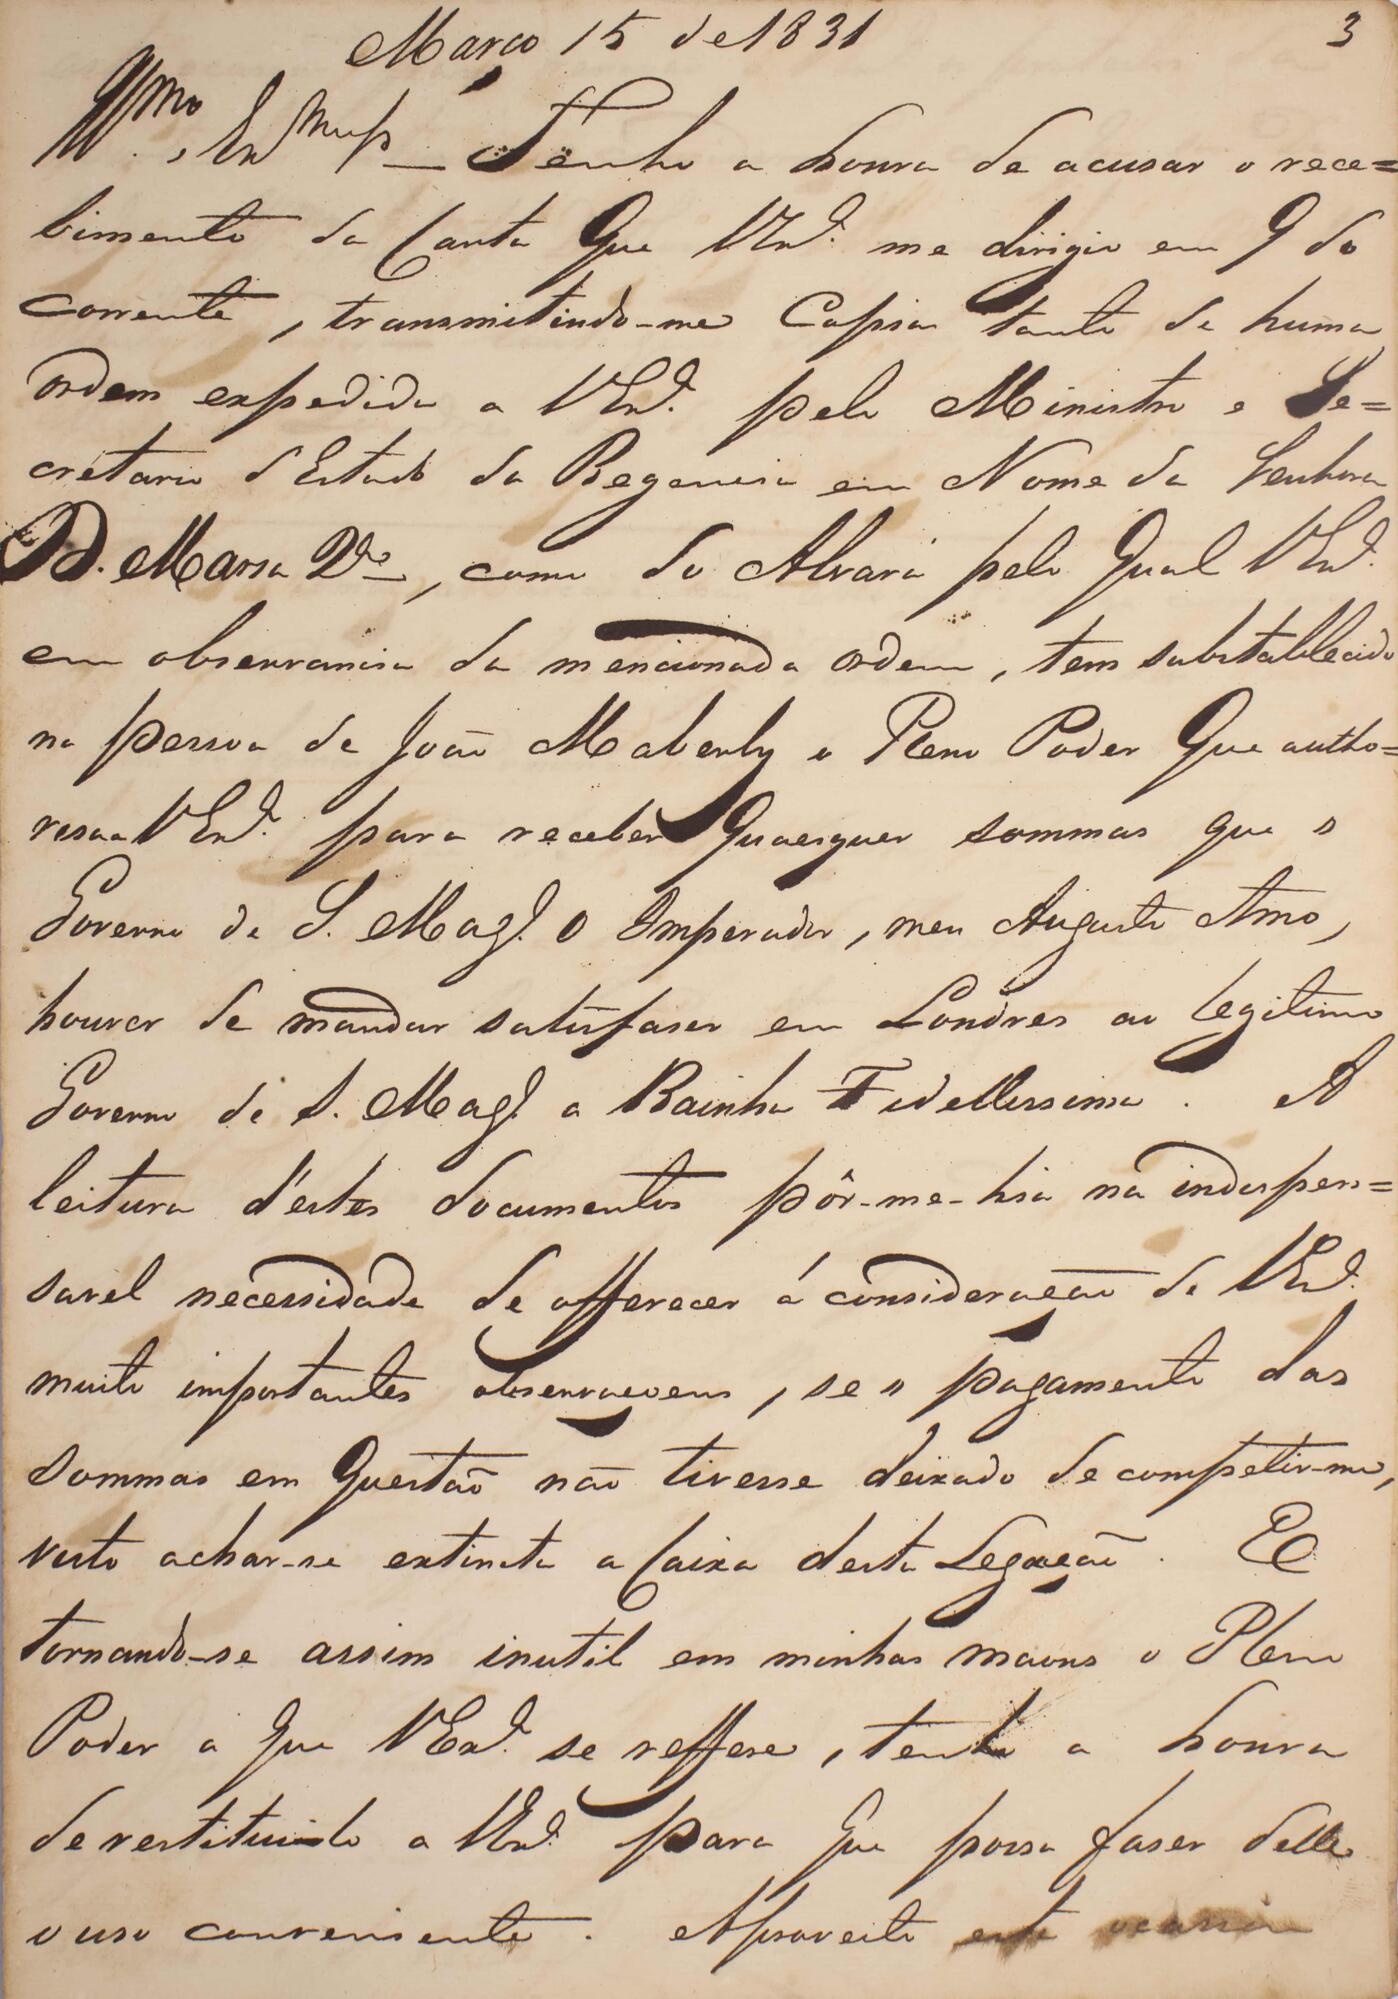 Março 15 de 1831
3
Illmo, Exmo Snr — Tenho a honra de acusar o rece=
bimento da Carta Que VExa. me dirigio em 9 do
corrente, transmitindo-me Copia tanto de huma
ordem expedida a VExa. pelo Ministro e Se=
cretario d'Estado da Regencia em Nome da Senhora
D. Maria 2da, como do Alvará pelo Qual VExa.
em observancia da mencionada ordem, tem substablecido
na pessoa de João Maberly o Pleno Poder Que autho=
risa a VExa. para receber Quaesquer sommas que o
Governo de S. Magde. O Imperador, meu Augusto Amo,
houver de mandar satisfaser em Londres ao legitimo
Governo de S. Magde. a Rainha Fidellissima. A
leitura d'estes documentos pôr-me-hia na indispen=
savel necessidade de offerecer á consideração de VExa.
muito importantes observaçoens, se o pagamento das
sommas em Questão não tivesse deixado de competir-me,
visto achar-se extincta a Caixa desta Legação. E
tornando-se assim inutil em minhas maons o Pleno
Poder a Que VExa. se reffere, tenho a honra
de restituilo a VExa. para Que possa faser delle
o uso conveniente. Aproveito esta ocasião